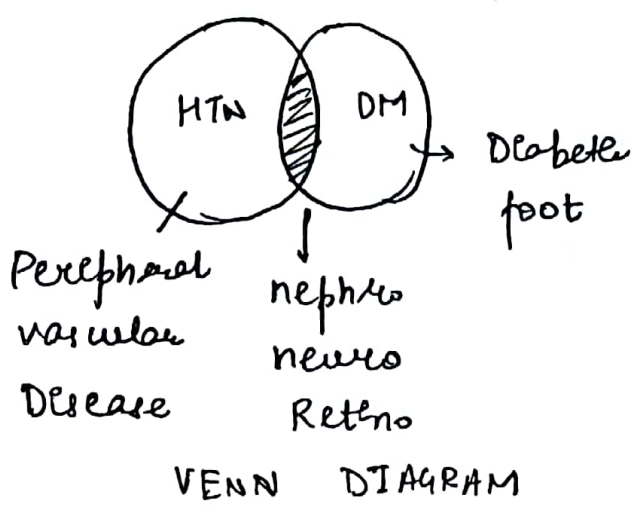 HTN
DM
Diabetic
foot
Peripheral
vascular
Disease
nephro
neuro
Retino
VENN DIAGRAM